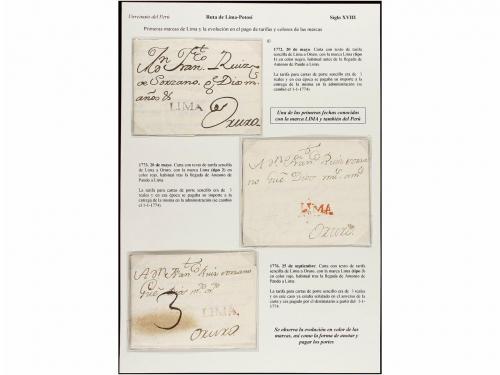 Virreinato del Perú Ruta de Lima-Potosí Siglo XVIII
Primeras marcas de Lima y la evolución en el pago de tarifas y colores de las marcas
1772, 20 de mayo. Carta con texto de tarifa
sencilla de Lima a Oruro, con la marca Lima (tipo
1) en color negro, habitual antes de la llegada de
Antonio de Pando a Lima.
La tarifa para cartas de porte sencillo era de 3
reales y en esa época se pagaba su importe a la
entrega de la misma en la administración (se cambio
el 1-1-1774).
Una de las primeras fechas conocidas
con la marca LIMA y también del Perú
años &
LIMA
Oruro
1773, 20 de mayo. Carta con texto de tarifa sencilla
de Lima a Oruro, con la marca Lima (tipo 2) en
color rojo, habitual tras la llegada de Antonio de
Pando a Lima.
La tarifa para cartas de porte sencillo era de 3
reales y en esa época se pagaba su importe a la
entrega de la misma en la administración (se cambio
el 1-1-1774).
LIMA
Oruro
1776, 25 de septiembre. Carta con texto de tarifa
sencilla de Lima a Oruro, con la marca Lima (tipo 3)
en color rojo, habitual tras la llegada de Antonio de
Pando a Lima.
La tarifa para cartas de porte sencillo era de 3 reales
y en este caso ya estaba señalada en el anverso de la
carta y era pagado por el destinatario a partir del
1-1-1774.
3
LIMA
Oruro
Se observa la evolución en color de las
marcas, así como la forma de anotar y
pagar los portes.